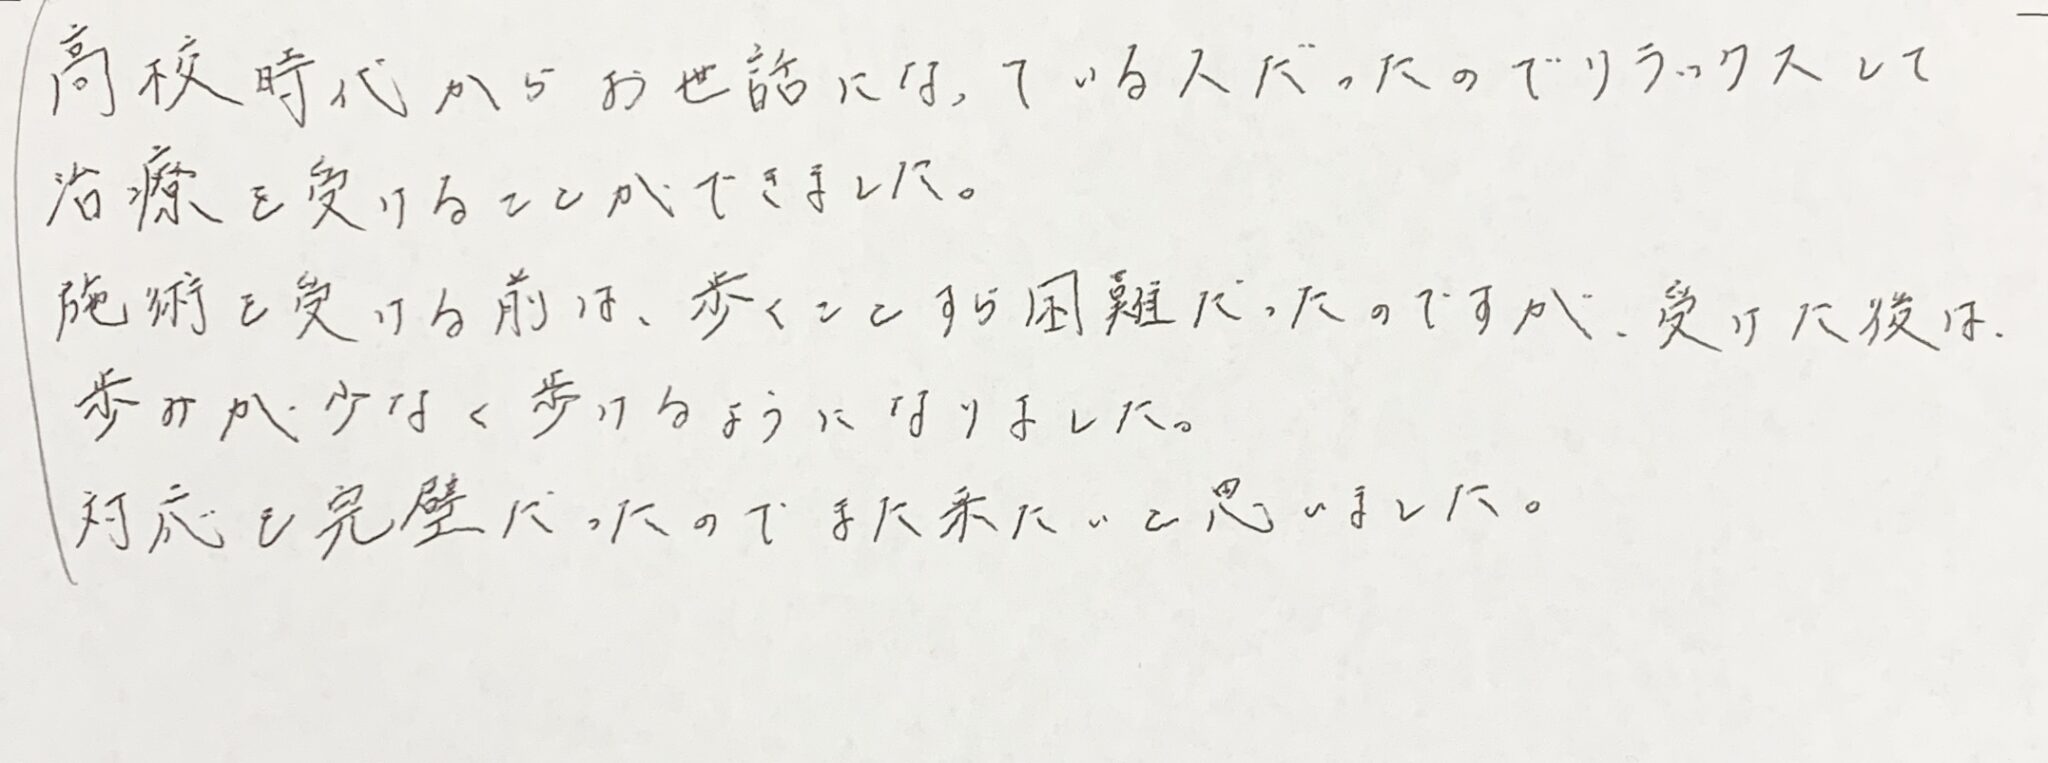 高校時代からお世話になっている人だったのでリラックスして
治療を受けることができました。
施術を受ける前は、歩くことすら困難だったのですが、受けた後は、
歩みが少なく歩けるようになりました。
対応も完璧だったのでまた来たいと思いました。